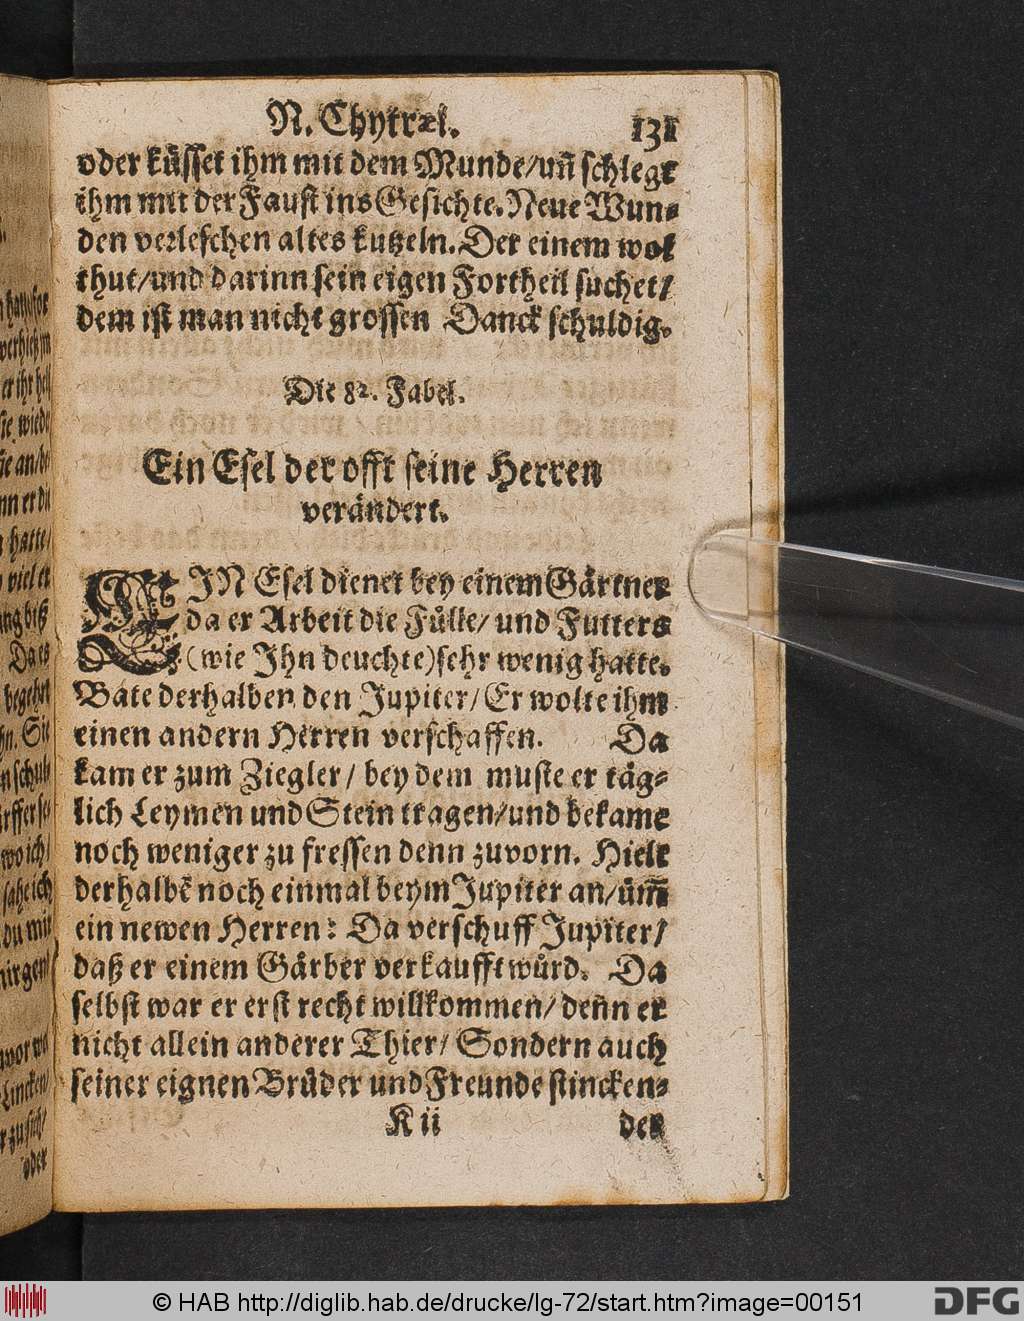 N. Chytræi. 131
oder küsset ihm mit dem Munde/uñ schlegt
ihm mit der Faust ins Gesichte. Neue Wun-
den verleschen altes kutzeln. Der einem wol
thut/und darinn sein eigen Fortheil suchet/
dem ist man nicht grossen Danck schuldig.
Die 82. Fabel.
Ein Esel der offt seine Herren
verändert.
EIN Esel dienet bey einem Gärtner
da er Arbeit die Fülle/ und Futters
(wie Ihn deuchte) sehr wenig hatte.
Bate derhalben den Jupiter/ Er wolte ihm
einen andern Herren verschaffen. Da
kam er zum Ziegler/ bey dem muste er täg-
lich Leymen und Stein tragen/und bekame
noch weniger zu fressen denn zuvorn. Hielt
derhalbẽ noch einmal beym Jupiter an/üm̃
ein newen Herren: Da verschuff Jupiter/
daß er einem Gärber verkaufft würd. Da
selbst war er erst recht willkommen/ denn er
nicht allein anderer Thier/ Sondern auch
seiner eignen Brüder und Freunde stincken-
K ii der
© HAB http://diglib.hab.de/drucke/lg-72/start.htm?image=00151
DFG